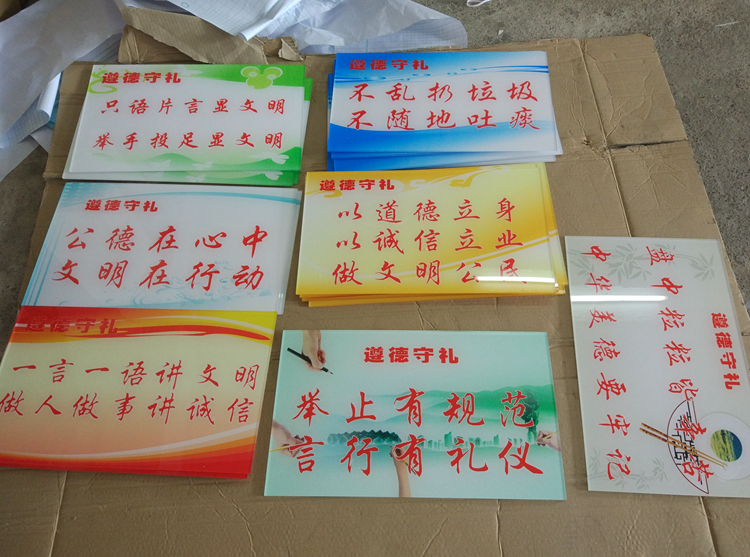 遵德守礼
只语片言显文明
举手投足显文明
遵德守礼
不乱扔垃圾
不随地吐痰
遵德守礼
公德在心中
文明在行动
遵德守礼
以道德立身
以诚信立业
做文明公民
遵德守礼
一言一语讲文明
做人做事讲诚信
遵德守礼
举止有规范
言行有礼仪
遵德守礼
盘中粒粒皆辛苦
中华美德要牢记